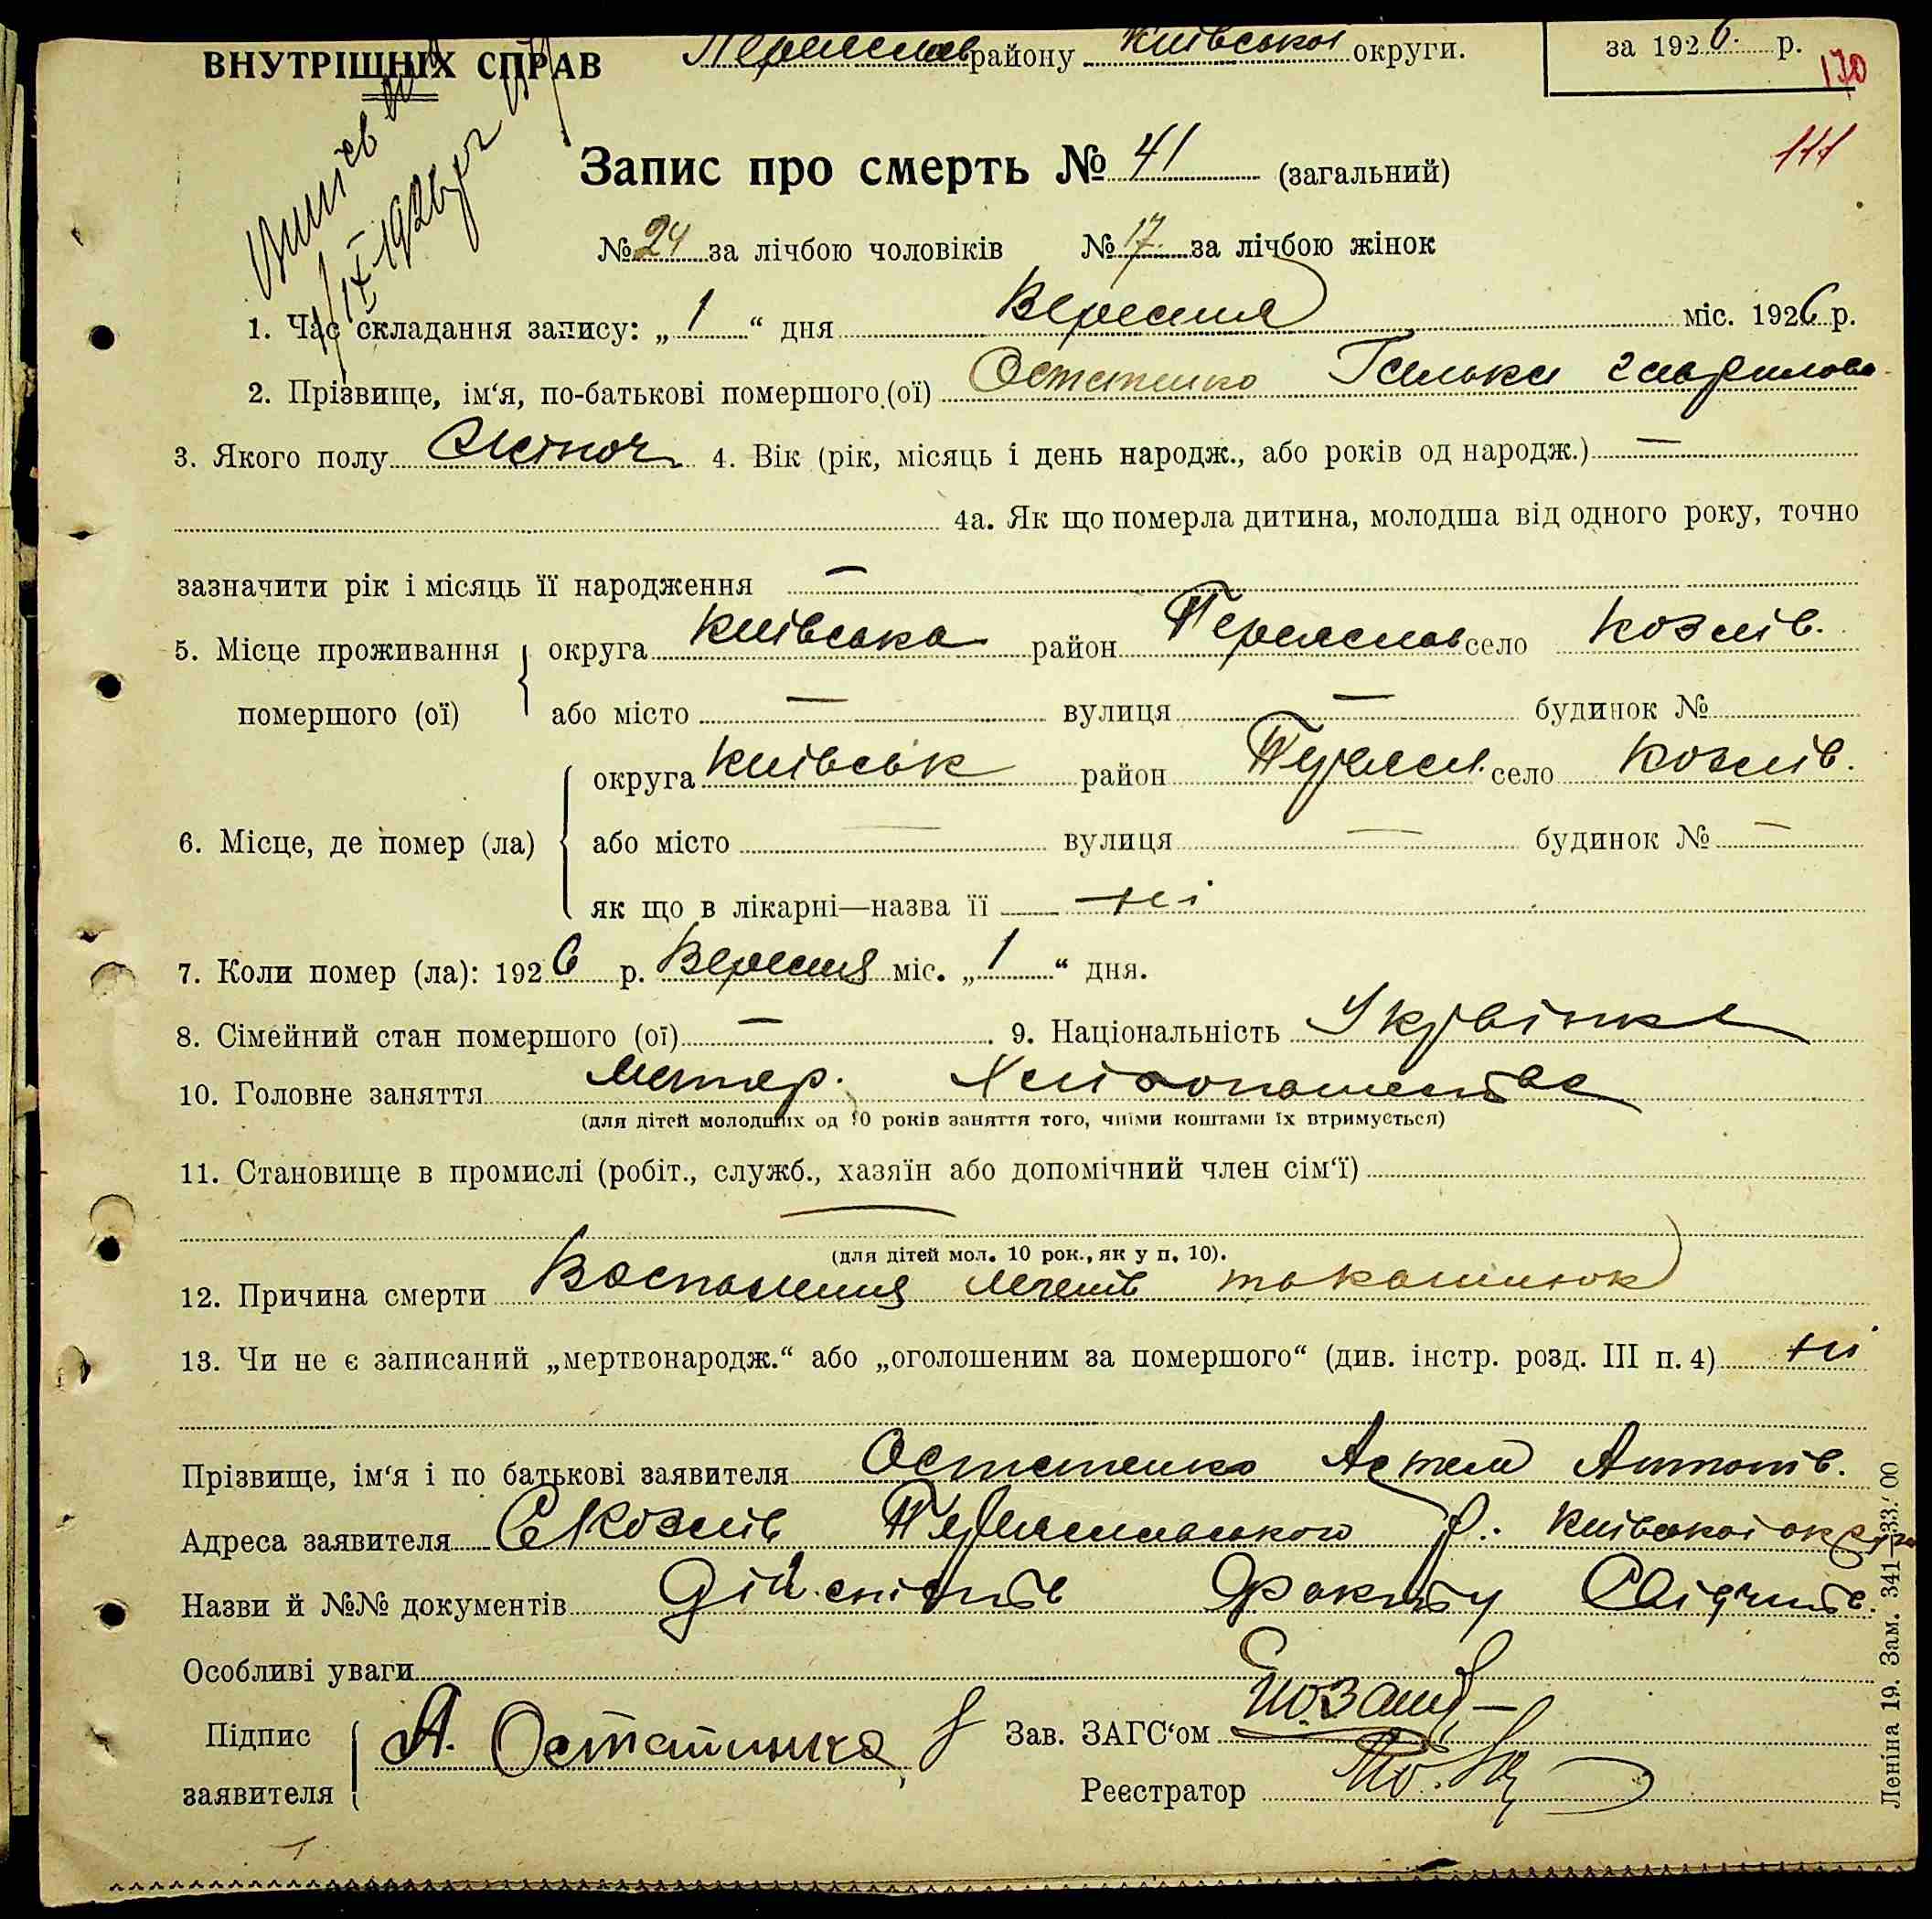 ВНУТРІШНІХ СПРАВ Переяслав району Київської округи. за 1926 р.
170
111
Запис про смерть № 41 (загальний)
№ 24 за лічбою чоловіків № 17 за лічбою жінок
1. Час складання запису: „1“ дня Вересня міс. 1926 р.
2. Прізвище, ім‘я, по-батькові помершого (ої) Остатенко
3. Якого полу Жіноч 4. Вік (рік, місяць і день народж., або років од народж.) —
4а. Як що померла дитина, молодша від одного року, точно
зазначити рік і місяць її народження —
5. Місце проживання округа Київська район Переяслав село Козлів.
помершого (ої) або місто — вулиця — будинок №
округа Київськ район Переясл. село Козлів.
6. Місце, де помер (ла) або місто — вулиця — будинок № —
як що в лікарні—назва її — ні
7. Коли помер (ла): 1926 р. Вересня міс. „1“ дня.
8. Сімейний стан помершого (ої) — 9. Національність Українка
10. Головне заняття Матер. Хліборобство
(для дітей молодших од 10 років заняття того, чиїми коштами їх втримується)
11. Становище в промислі (робіт., служб., хазяїн або допомічний член сім‘ї)
—
(для дітей мол. 10 рок., як у п. 10).
12. Причина смерти
13. Чи не є записаний „мертвонародж.“ або „оголошеним за помершого“ (див. інстр. розд. III п. 4) ні
Прізвище, ім‘я і по батькові заявителя Остатенко Антонів.
Адреса заявителя С Козлів Переяславського р. Київської округи
Назви й №№ документів Дійсність факту Свідчить.
Особливі уваги
Підпис А. Остатинко Зав. ЗАГС‘ом
заявителя Реєстратор
Леніна 19. Зам. 341—33.‘00